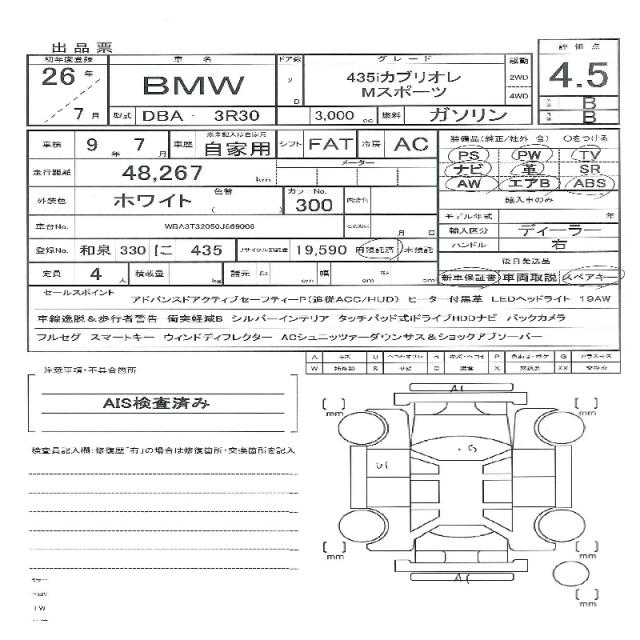 出品票
初年度登録 車名 ドア数 グレード 駆動 評価点
26年 BMW 2 435iカブリオレ 2WD 4.5
D Mスポーツ 4WD B
7月 型式 DBA - 3R30 3,000 cc 燃料 ガソリン B
車検 9年 7月 車歴 自家用 シフト FAT 冷房 AC 装備品(純正/社外 含) ○をつける
PS PW TV
走行距離 48,267 km メーター ナビ 革 SR
AW エアB ABS
外装色 ホワイト 色替 ( ) カラーNo. 300 輸入車のみ
モデル年式 年
車台No. WBA3T32050J569008 月 日 輸入区分 ディーラー
登録No. 和泉 330 に 435 リサイクル預託金 19,590 預託済 未預託 ハンドル 右
後日発送品
定員 4人 積載量 諸元 長 cm 幅 cm 高 cm 新車保証書 車両取説 スペアキー
セールスポイント
アドバンスドアクティブセーフティーP(追従ACC/HUD) ヒーター付黒革 LEDヘッドライト 19AW
車線逸脱&歩行者警告 衝突軽減B シルバーインテリア タッチパッド式iドライブHDDナビ バックカメラ
フルセグ スマートキー ウィンドディフレクター ACシュニッツァーダウンサス&ショックアブソーバー
A キズ U P G
W S サビ C 腐食 X XX
注意事項・不具合箇所
AIS検査済み
検査員記入欄:修復歴「有」の場合は修復箇所・交換箇所を記入
A1
[ ] mm [ ] mm
U1 .G
[ ] mm [ ] mm
[ ] mm